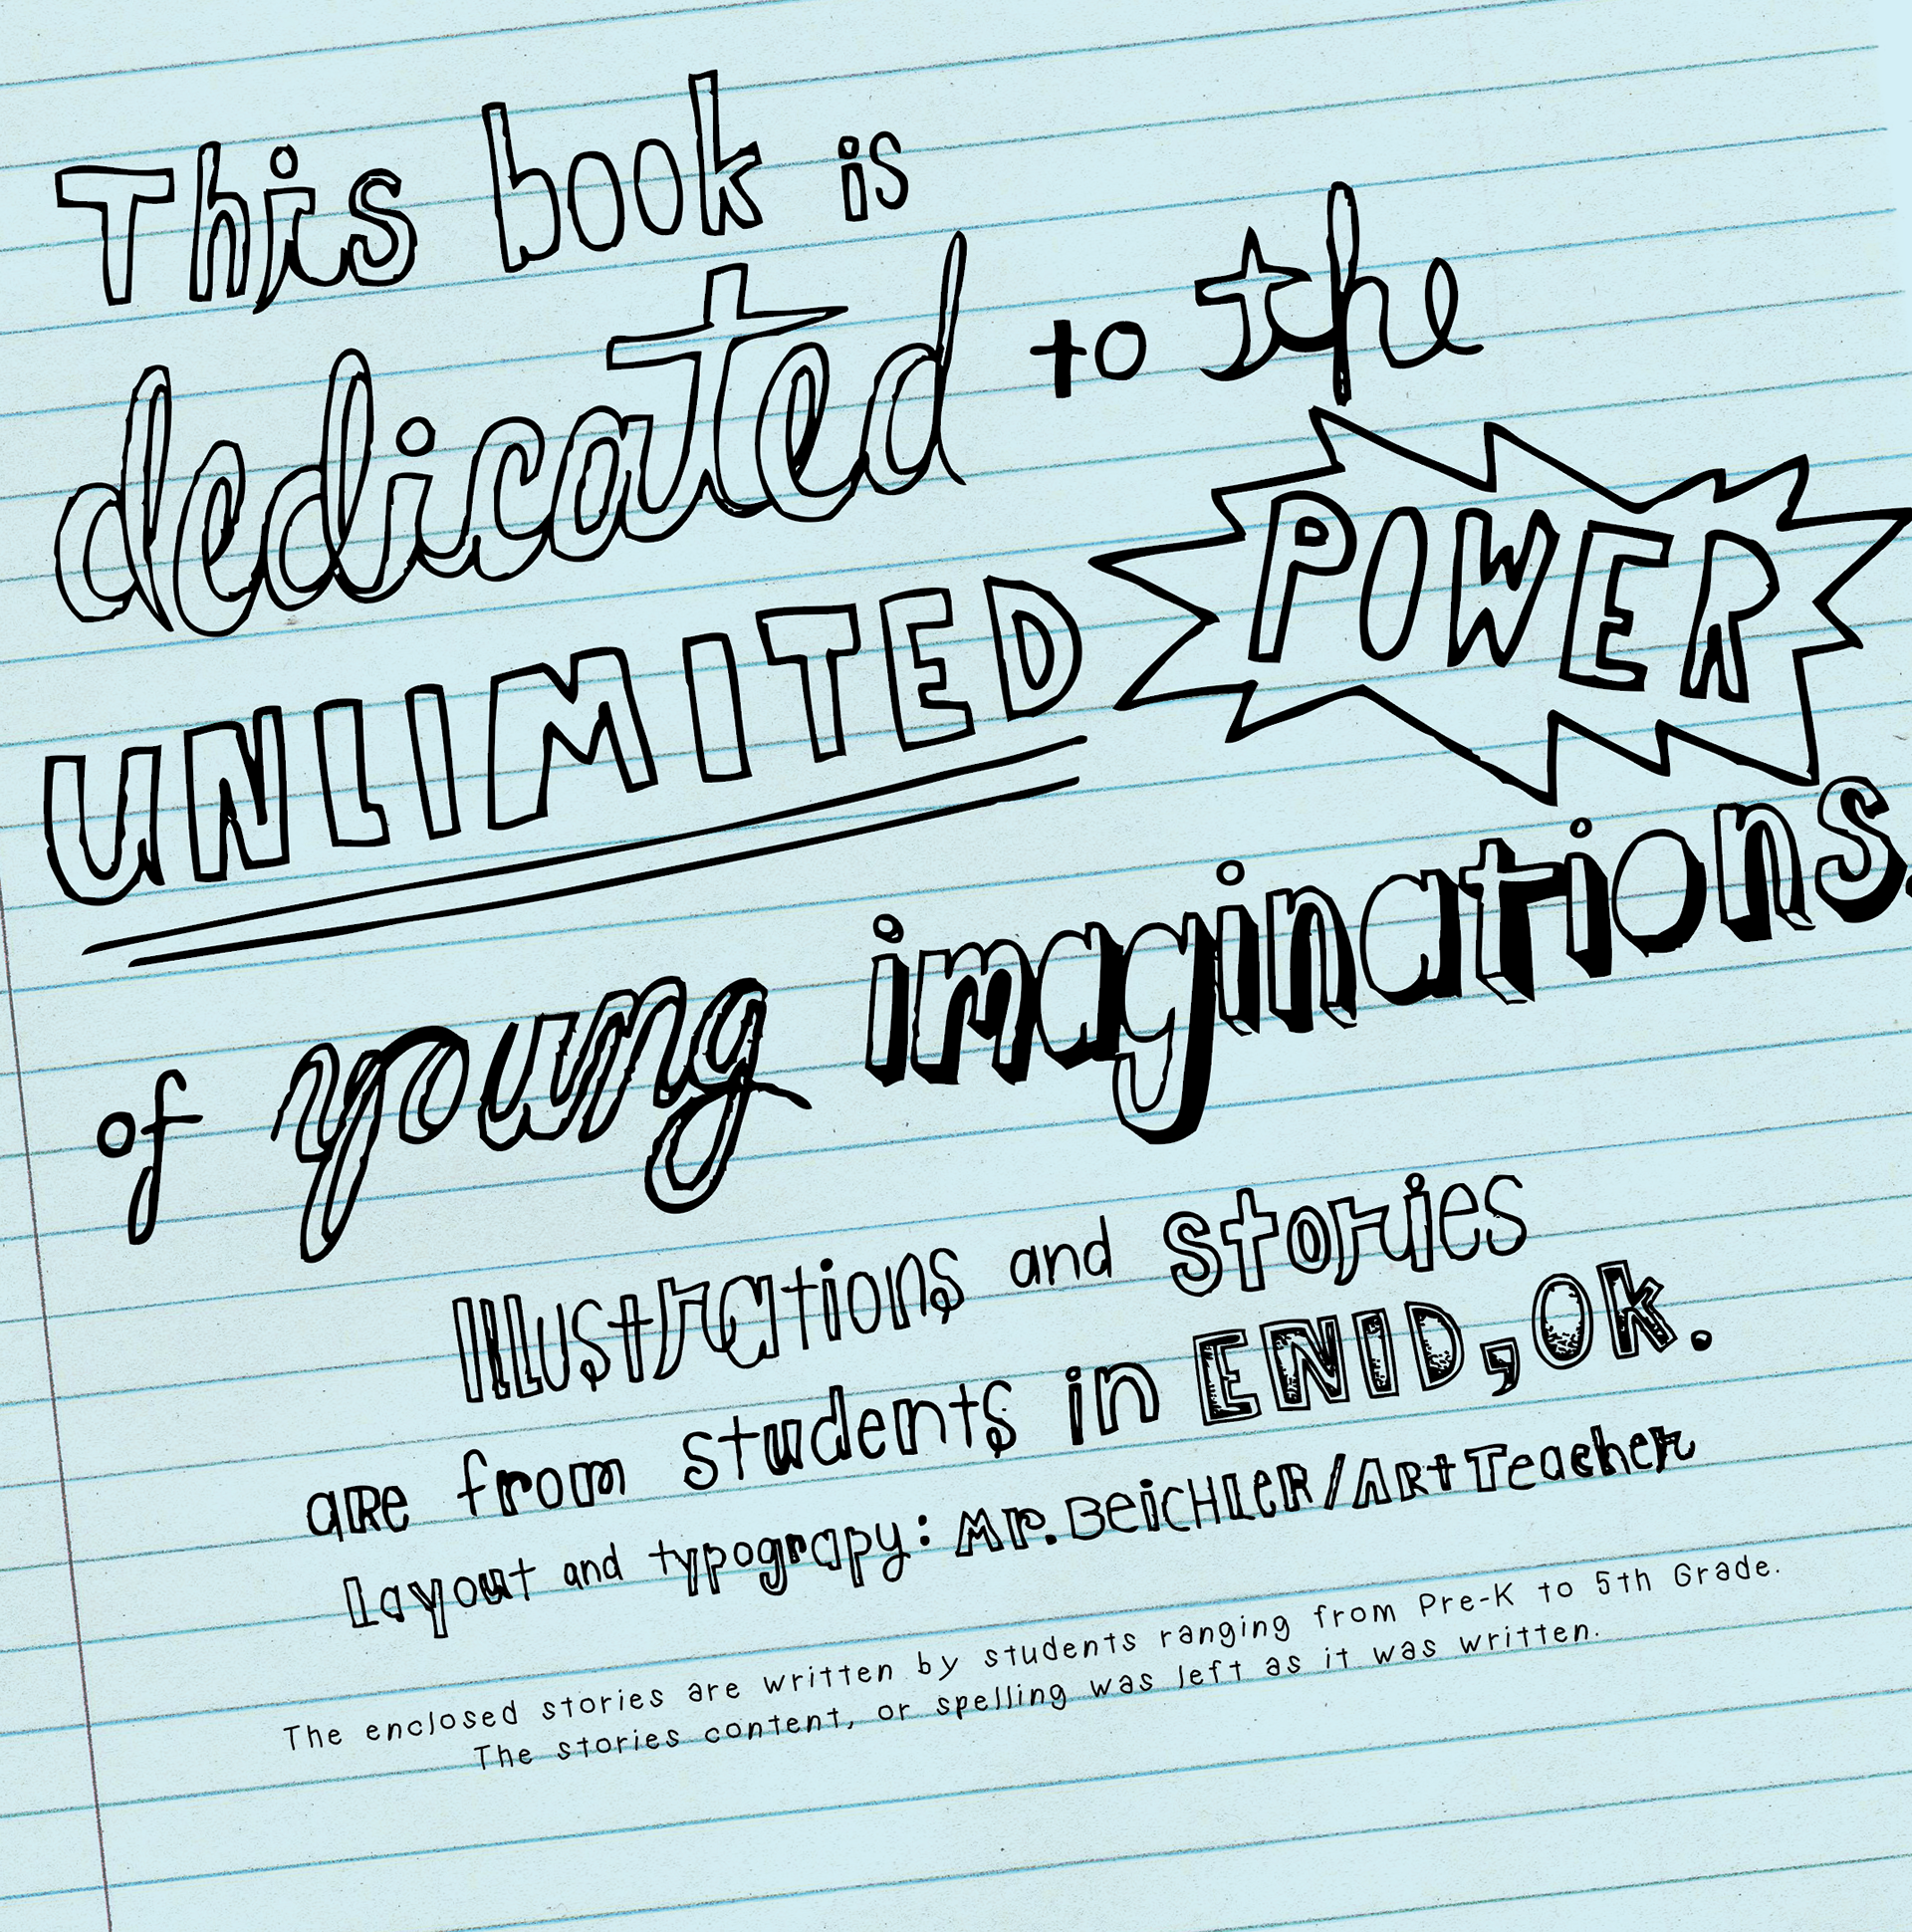 This book is
dedicated to the
UNLIMITED POWER
of young imaginations.
Illustrations and stories
are from students in ENID, Ok.
Layout and typograpy: Mr. Beichler/Art Teacher
The enclosed stories are written by students ranging from Pre-K to 5th Grade.
The stories content, or spelling was left as it was written.